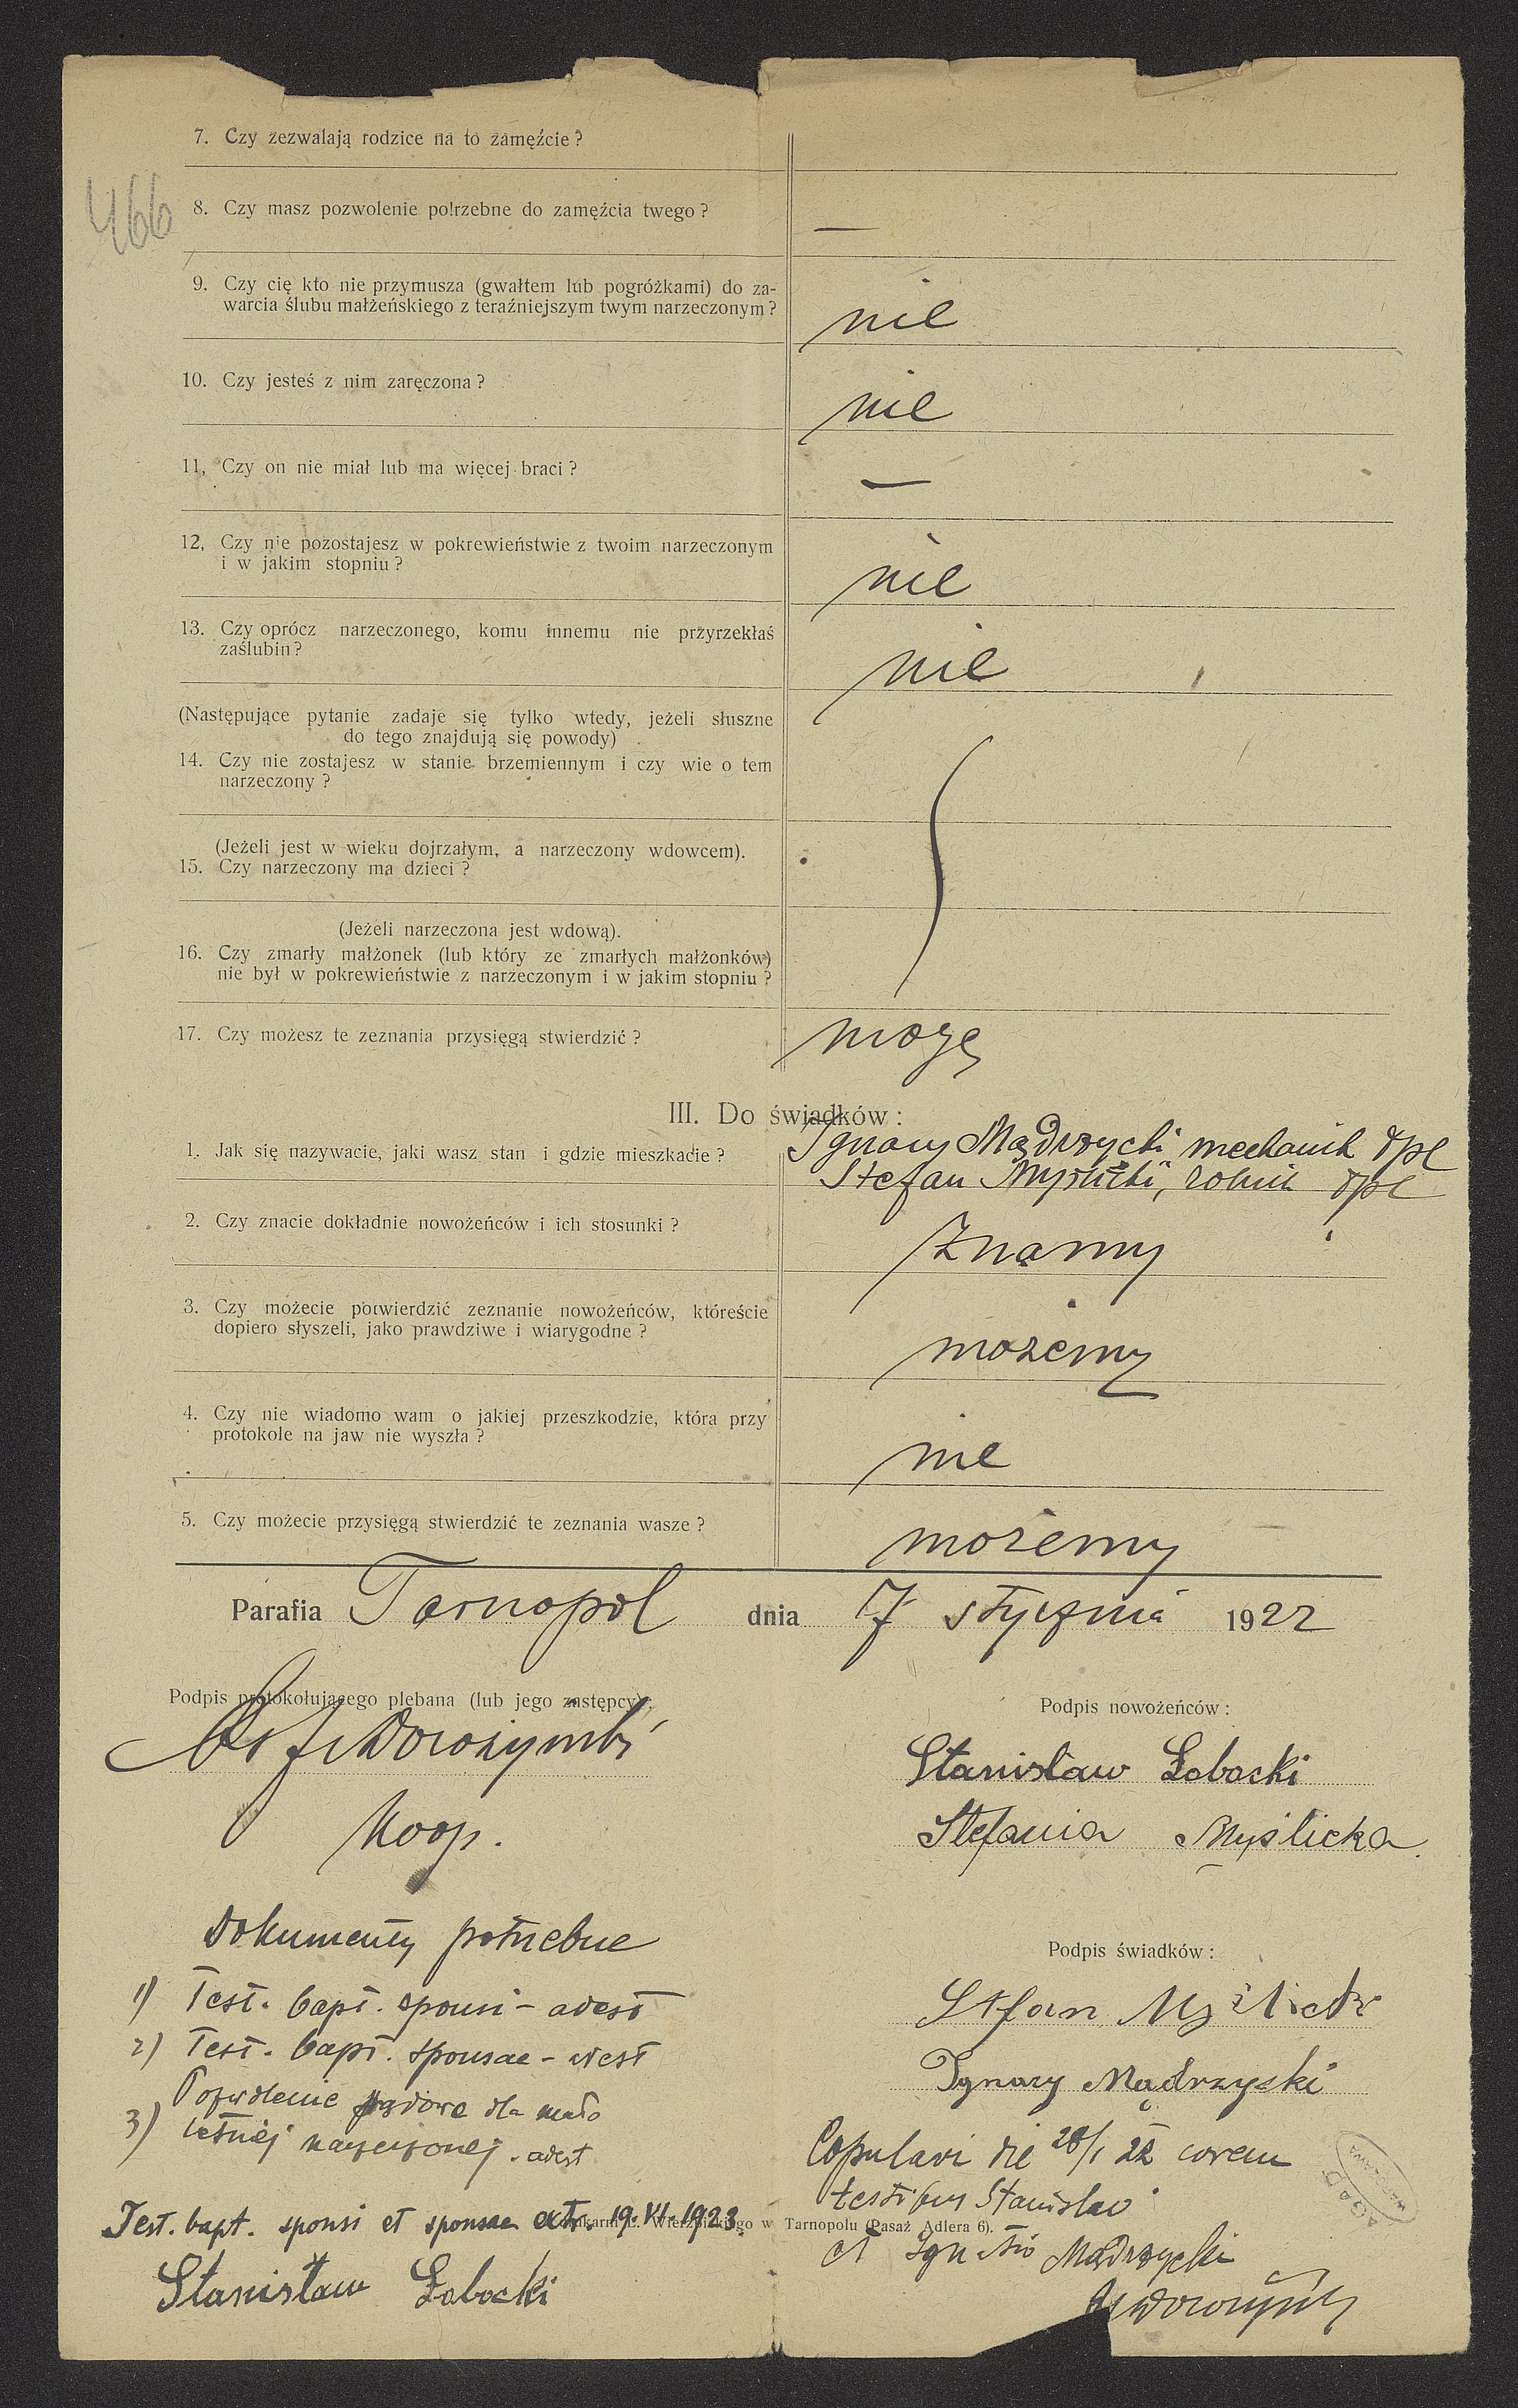 466
7. Czy zezwalają rodzice na to zamęźcie ?
8. Czy masz pozwolenie potrzebne do zamęźcia twego ?
—
9. Czy cię kto nie przymusza (gwałtem lub pogróżkami) do za-
warcia ślubu małżeńskiego z teraźniejszym twym narzeczonym ?
nie
10. Czy jesteś z nim zaręczona ?
nie
11, Czy on nie miał lub ma więcej braci ?
—
12, Czy nie pozostajesz w pokrewieństwie z twoim narzeczonym
i w jakim stopniu ?
nie
13. Czy oprócz narzeczonego, komu innemu nie przyrzekłaś
zaślubin ?
nie
(Następujące pytanie zadaje się tylko wtedy, jeżeli słuszne
do tego znajdują się powody)
14. Czy nie zostajesz w stanie brzemiennym i czy wie o tem
narzeczony ?
(Jeżeli jest w wieku dojrzałym, a narzeczony wdowcem).
15. Czy narzeczony ma dzieci ?
(Jeżeli narzeczona jest wdową).
16. Czy zmarły małżonek (lub który ze zmarłych małżonków)
nie był w pokrewieństwie z narzeczonym i w jakim stopniu ?
17. Czy możesz te zeznania przysięgą stwierdzić ?
mogę
III. Do świadków :
1. Jak się nazywacie, jaki wasz stan i gdzie mieszkacie ?
Ignacy Mądrzycki mechanik
Stefan Myślicki, rolnik
2. Czy znacie dokładnie nowożeńców i ich stosunki ?
znamy
3. Czy możecie potwierdzić zeznanie nowożeńców, któreście
dopiero słyszeli, jako prawdziwe i wiarygodne ?
możemy
4. Czy nie wiadomo wam o jakiej przeszkodzie, która przy
protokole na jaw nie wyszła ?
nie
5. Czy możecie przysięgą stwierdzić te zeznania wasze ?
możemy
Parafia Tarnopol dnia 7 stycznia 1922
Podpis protokołującego plebana (lub jego zastępcy) :
Koop.
Podpis nowożeńców :
Stanisław Łobocki
Stefania Myślicka
Dokumenty potrzebne
1) Test. bapt. sponsi – adest
2) Test. bapt. sponsae – adest
3) Pozwolenie sądowe dla mało
letniej narzeczonej . adest
Test. bapt. sponsi et sponsae extr. 19.VI.1923.
Stanisław Łobocki
Podpis świadków :
Stefan Myślicki
Ignacy Mądrzycki
Copulavi die 28/1 22 coram
testibus Stanislao
w Tarnopolu (Pasaż Adlera 6).
et Ignatio Mądrzycki
AGAD
WARSZAWA